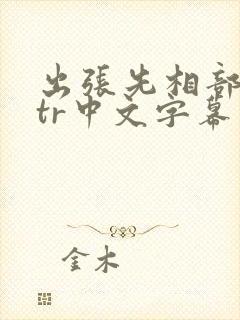 出張先相部
tr中文字幕
金木